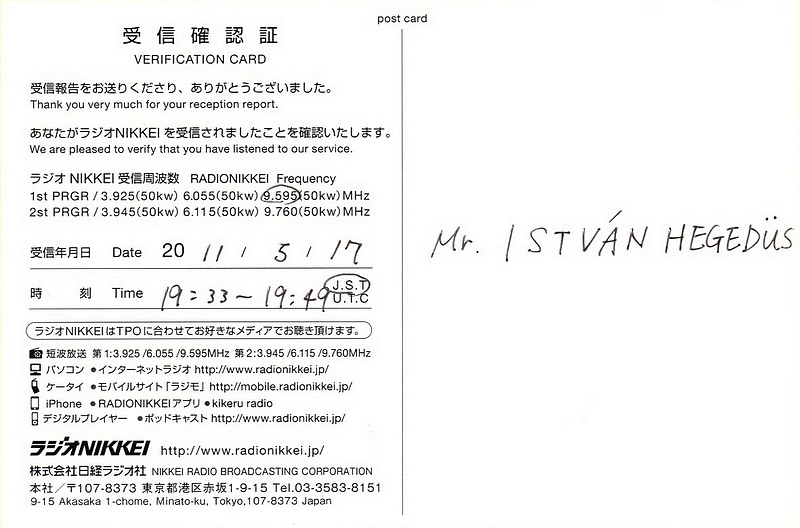 post card
受信確認証
VERIFICATION CARD
受信報告をお送りくださり、ありがとうございました。
Thank you very much for your reception report.
あなたがラジオNIKKEIを受信されましたことを確認いたします。
We are pleased to verify that you have listened to our service.
ラジオNIKKEI受信周波数 RADIONIKKEI Frequency
1st PRGR / 3.925(50kw) 6.055(50kw) 9.595(50kw)MHz
2st PRGR / 3.945(50kw) 6.115(50kw) 9.760(50kw)MHz
受信年月日 Date 20 11 / 5 / 17
時 刻 Time 19:33~19:49 J.S.T
U.T.C
ラジオNIKKEIはTPOに合わせてお好きなメディアでお聴き頂けます。
短波放送 第1:3.925 /6.055 /9.595MHz 第2:3.945 /6.115 /9.760MHz
パソコン ●インターネットラジオ http://www.radionikkei.jp/
ケータイ ●モバイルサイト「ラジモ」http://mobile.radionikkei.jp/
iPhone ●RADIONIKKEIアプリ ●kikeru radio
デジタルプレイヤー ●ポッドキャスト http://www.radionikkei.jp/
ラジオNIKKEI http://www.radionikkei.jp/
株式会社日経ラジオ社 NIKKEI RADIO BROADCASTING CORPORATION
本社/〒107-8373 東京都港区赤坂1-9-15 Tel.03-3583-8151
9-15 Akasaka 1-chome, Minato-ku, Tokyo,107-8373 Japan
Mr. ISTVÁN HEGEDÜS